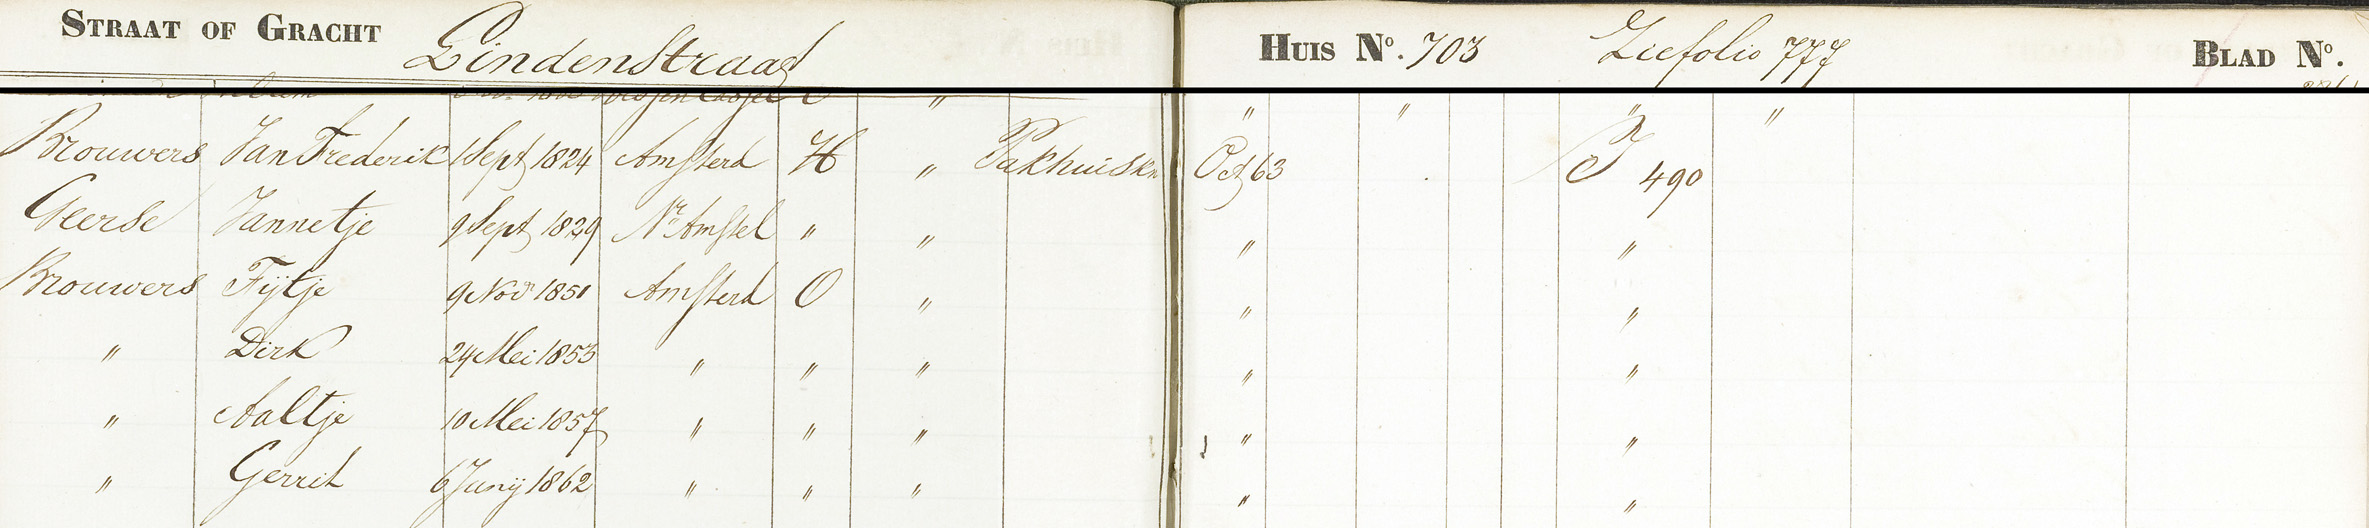 STRAAT OF GRACHT Lindenstraat HUIS No. 703 Ziefolio 777 BLAD No.
" " " " "
Brouwers Jan Frederik 1 Sept 1824 Amsterd H " Pakhuiskn Oct 63 J 490
Geerse Jannetje 9 Sept 1829 Nr Amstel " " " "
Brouwers Fijtje 9 Nov 1851 Amsterd O " " "
" Dirk 24 Mei 1853 " " " " "
" Aaltje 10 Mei 1857 " " " " "
" Gerrit 6 Junij 1862 " " " " "